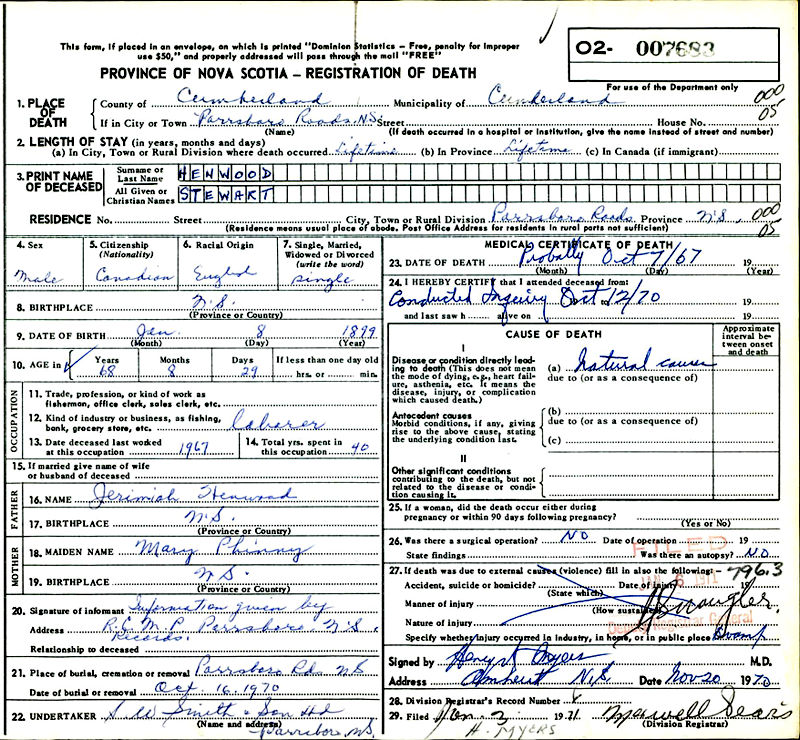 This form, if placed in an envelope, on which is printed "Dominion Statistics – Free, penalty for improper
use $50," and properly addressed will pass through the mail "FREE"
PROVINCE OF NOVA SCOTIA – REGISTRATION OF DEATH
O2- 007683
For use of the Department only
000
05
1. PLACE OF DEATH
County of Cumberland Municipality of Cumberland
If in City or Town Parrsboro Roads, N.S. Street House No.
(Name) (If death occurred in a hospital or institution, give the name instead of street and number)
2. LENGTH OF STAY (in years, months and days)
(a) In City, Town or Rural Division where death occurred Lifetime (b) In Province Lifetime (c) In Canada (if immigrant)
3. PRINT NAME OF DECEASED
Surname or Last Name HENWOOD
All Given or Christian Names STEWART
RESIDENCE No. Street City, Town or Rural Division Parrsboro Roads Province N.S. 000
05
(Residence means usual place of abode. Post Office Address for residents in rural parts not sufficient)
4. Sex
Male
5. Citizenship
(Nationality)
Canadian
6. Racial Origin
English
7. Single, Married,
Widowed or Divorced
(write the word)
Single
8. BIRTHPLACE N.S.
(Province or Country)
9. DATE OF BIRTH Jan. 8 1899
(Month) (Day) (Year)
10. AGE in
Years Months Days If less than one day old
68 8 29 hrs. or min.
OCCUPATION
11. Trade, profession, or kind of work as
fisherman, office clerk, sales clerk, etc.
12. Kind of industry or business, as fishing,
bank, grocery store, etc. Laborer
13. Date deceased last worked
at this occupation 1967
14. Total yrs. spent in
this occupation 40
15. If married give name of wife
or husband of deceased
FATHER
16. NAME Jerimiah Henwood
17. BIRTHPLACE N.S.
(Province or Country)
MOTHER
18. MAIDEN NAME Mary Phinny
19. BIRTHPLACE N.S.
(Province or Country)
20. Signature of informant Information given by
Address R.C.M.P Parrsboro N.S.
Records.
Relationship to deceased
21. Place of burial, cremation or removal Parrsboro Rd. NS
Date of burial or removal Oct. 16, 1970
22. UNDERTAKER S.W. Smith & Son Ltd
(Name and address) Parrsboro, N.S.
MEDICAL CERTIFICATE OF DEATH
23. DATE OF DEATH Probally Oct 7/67 19
(Month) (Day) (Year)
24. I HEREBY CERTIFY that I attended deceased from:
Conducted Inquiry Oct 12/70 19
and last saw h alive on 19
CAUSE OF DEATH
Approximate interval between onset and death
I
Disease or condition directly leading to death (This does not mean the mode of dying, e.g., heart failure, asthenia, etc. It means the disease, injury, or complication which caused death.)
(a) Natural causes
due to (or as a consequence of)
Antecedent causes
Morbid conditions, if any, giving rise to the above cause, stating the underlying condition last.
(b)
due to (or as a consequence of)
(c)
II
Other significant conditions
contributing to the death, but not related to the disease or condition causing it.
25. If a woman, did the death occur either during
pregnancy or within 90 days following pregnancy?
(Yes or No)
26. Was there a surgical operation? NO Date of operation 19
State findings Was there an autopsy? NO
FILED
27. If death was due to external causes (violence) fill in also the following:– 796.3
Accident, suicide or homicide? Date of injury 19
(State which)
JAN 8 1971
Manner of injury
(How sustained)
Nature of injury
Deputy Registrar General
Specify whether injury occurred in industry, in home, or in public place Swamp
Signed by Henry Myers M.D.
Address Amherst N.S. Date Nov 20 1970
28. Division Registrar's Record Number
29. Filed Jan. 3 1971 Maxwell Sears
(Division Registrar)
H. MYERS